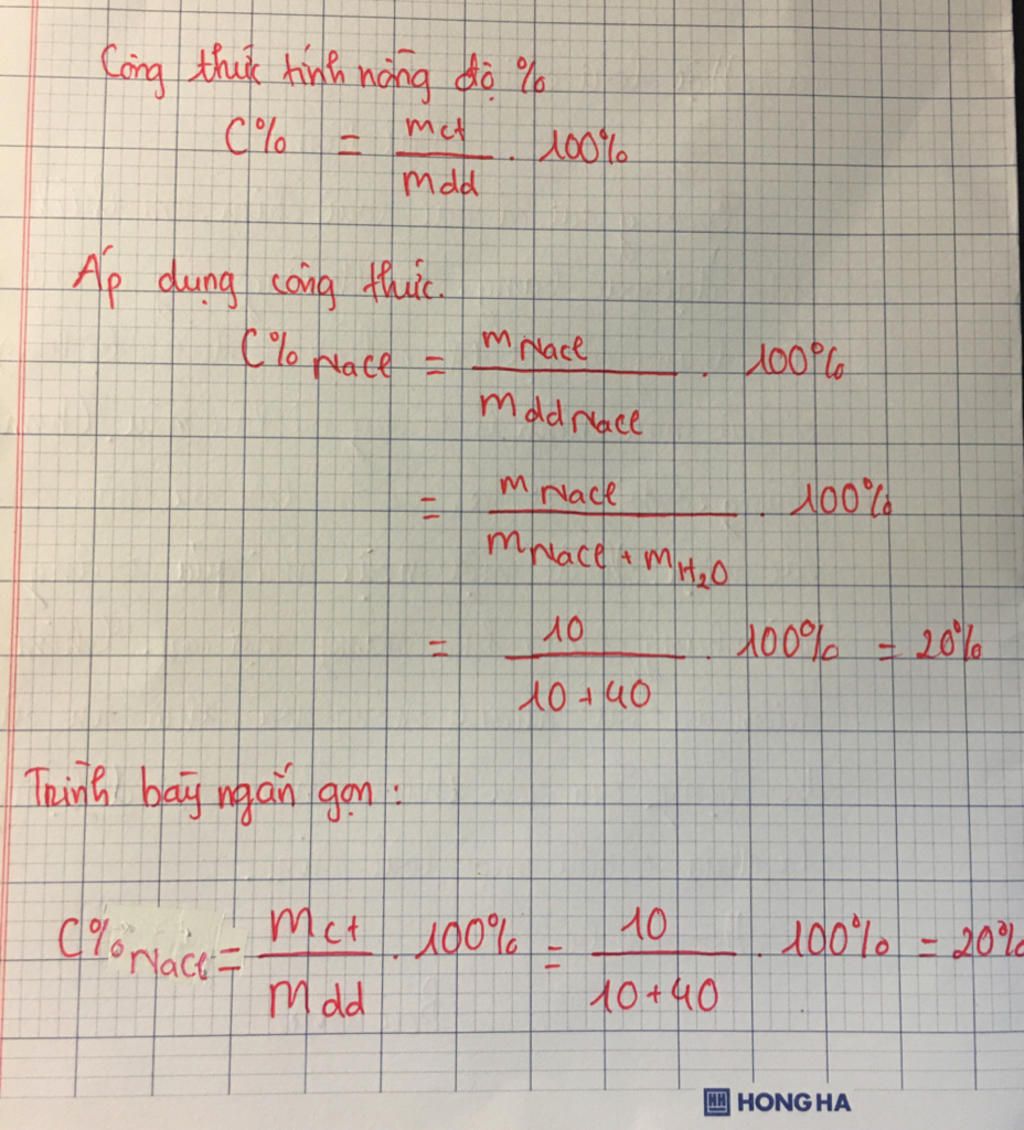 Công thức tính nồng độ %
C% = mct / mdd . 100%
Áp dụng công thức.
C% NaCl = mNaCl / mddNaCl . 100%
= mNaCl / mNaCl + mH₂O . 100%
= 10 / 10+40 . 100% = 20%
Trình bày ngắn gọn:
C% NaCl = mct / mdd . 100% = 10 / 10+40 . 100% = 20%
HH HONG HA